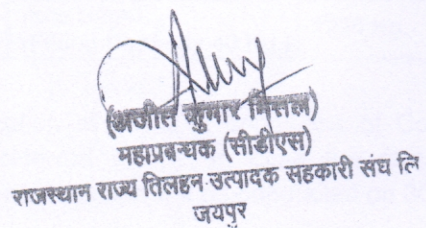 (अजीत कुमार मित्तल)
महाप्रबन्धक (सीडीएस)
राजस्थान राज्य तिलहन उत्पादक सहकारी संघ लि
जयपुर